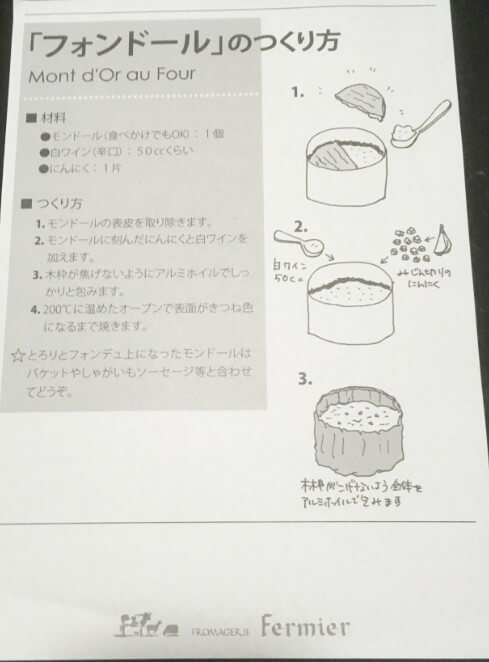 「フォンドール」のつくり方
Mont d'Or au Four
■ 材料
●モンドール（食べかけでもOK）：１個
●白ワイン（辛口）：５０ccくらい
●にんにく：１片
■ つくり方
1. モンドールの表皮を取り除きます。
2. モンドールに刻んだにんにくと白ワインを
加えます。
3. 木枠が焦げないようにアルミホイルでしっ
かりと包みます。
4. 200℃に温めたオーブンで表面がきつね色
になるまで焼きます。
☆とろりとフォンデュ上になったモンドールは
バケットやじゃがいもソーセージ等と合わせ
てどうぞ。
1.
2.
白ワイン
50cc
みじん切りの
にんにく
3.
木枠がこげないよう全体を
アルミホイルで包みます
FROMAGERIE Fermier